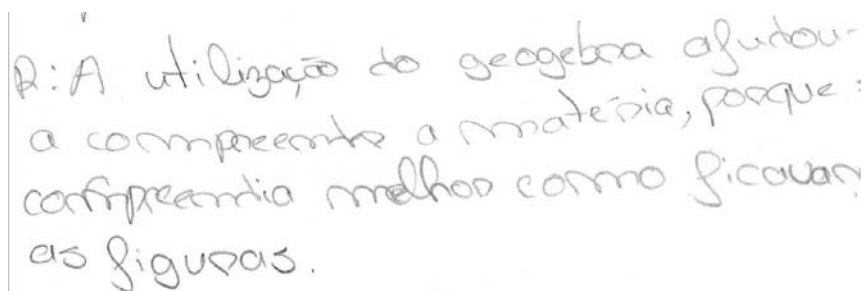 R: A utilização do geogebra ajudou-
a compreender a matéria, porque
compreendia melhor como ficavam
as figuras.